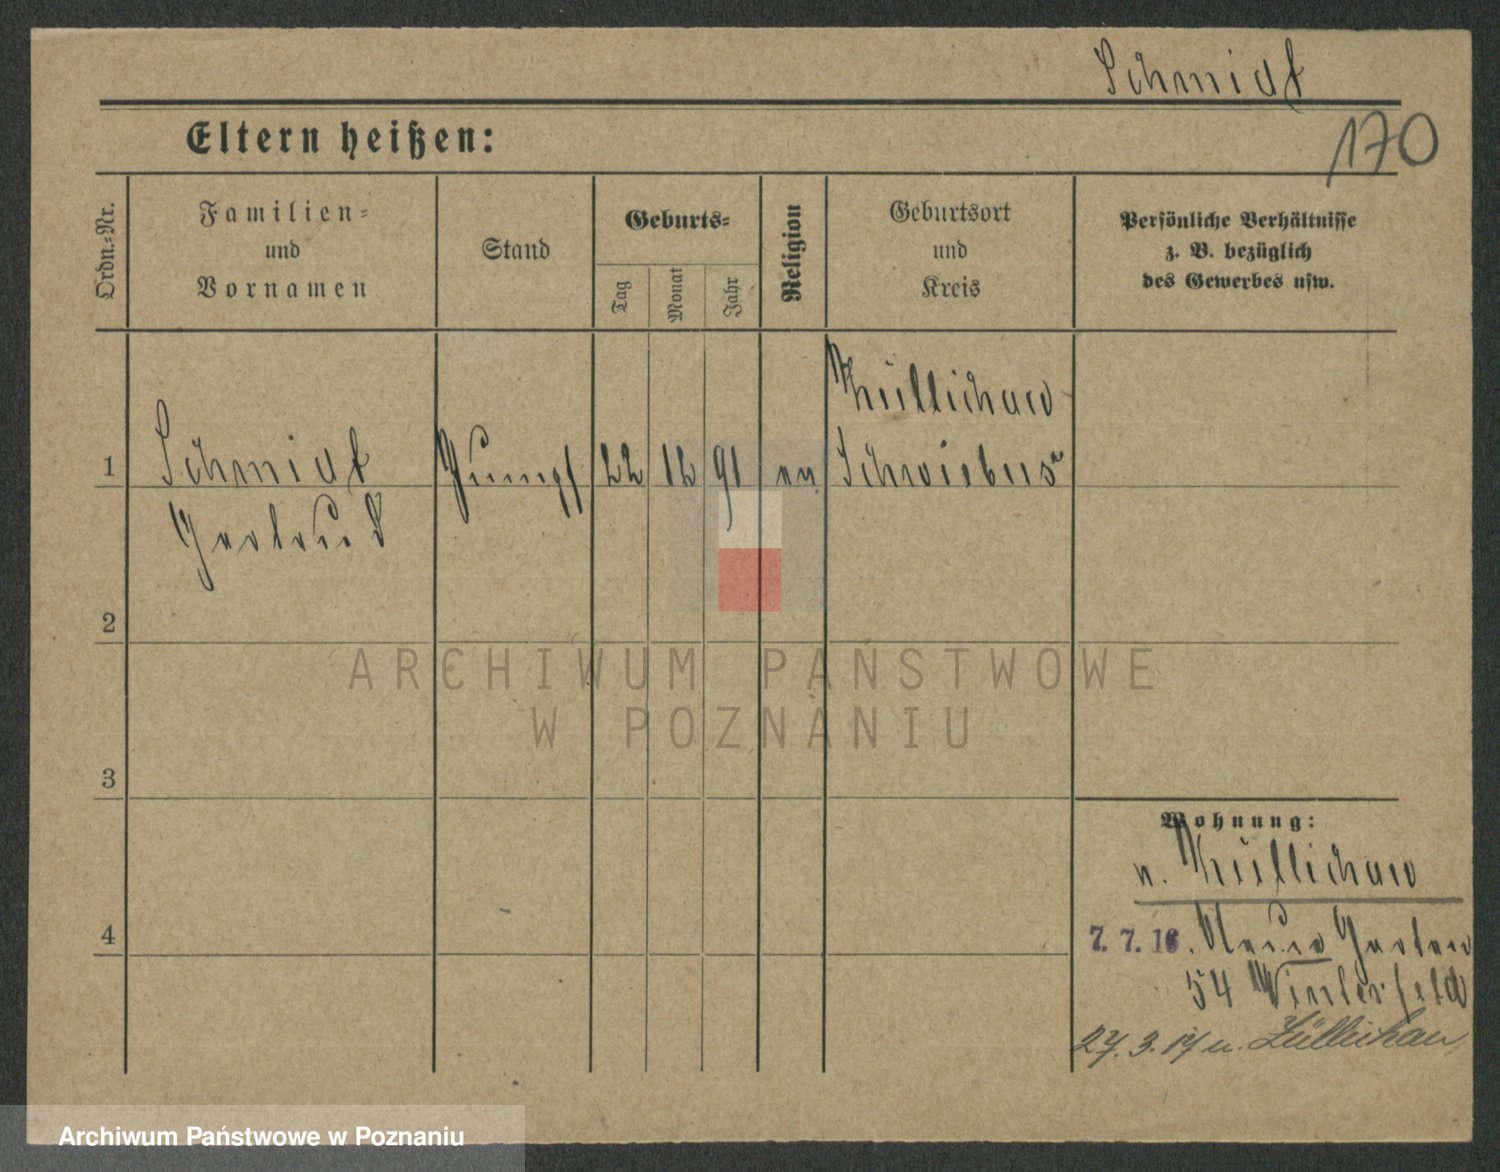 Schmidt
170
Eltern heißen:
Ordn.=Nr.
Familien=
und
Vornamen
Stand
Geburts=
Tag
Monat
Jahr
Religion
Geburtsort
und
Kreis
Persönliche Verhältnisse
z. B. bezüglich
des Gewerbes usw.
Züllichau
1 Schmidt 22 12 91 ev. Schwiebus
Gertrud
2
ARCHIWUM PAŃSTWOWE
W POZNANIU
3
Wohnung:
n. Züllichau
4
7. 7. 16. Neue Garten
54 Winterfeld
27. 3. 17 n. Züllichau
Archiwum Państwowe w Poznaniu